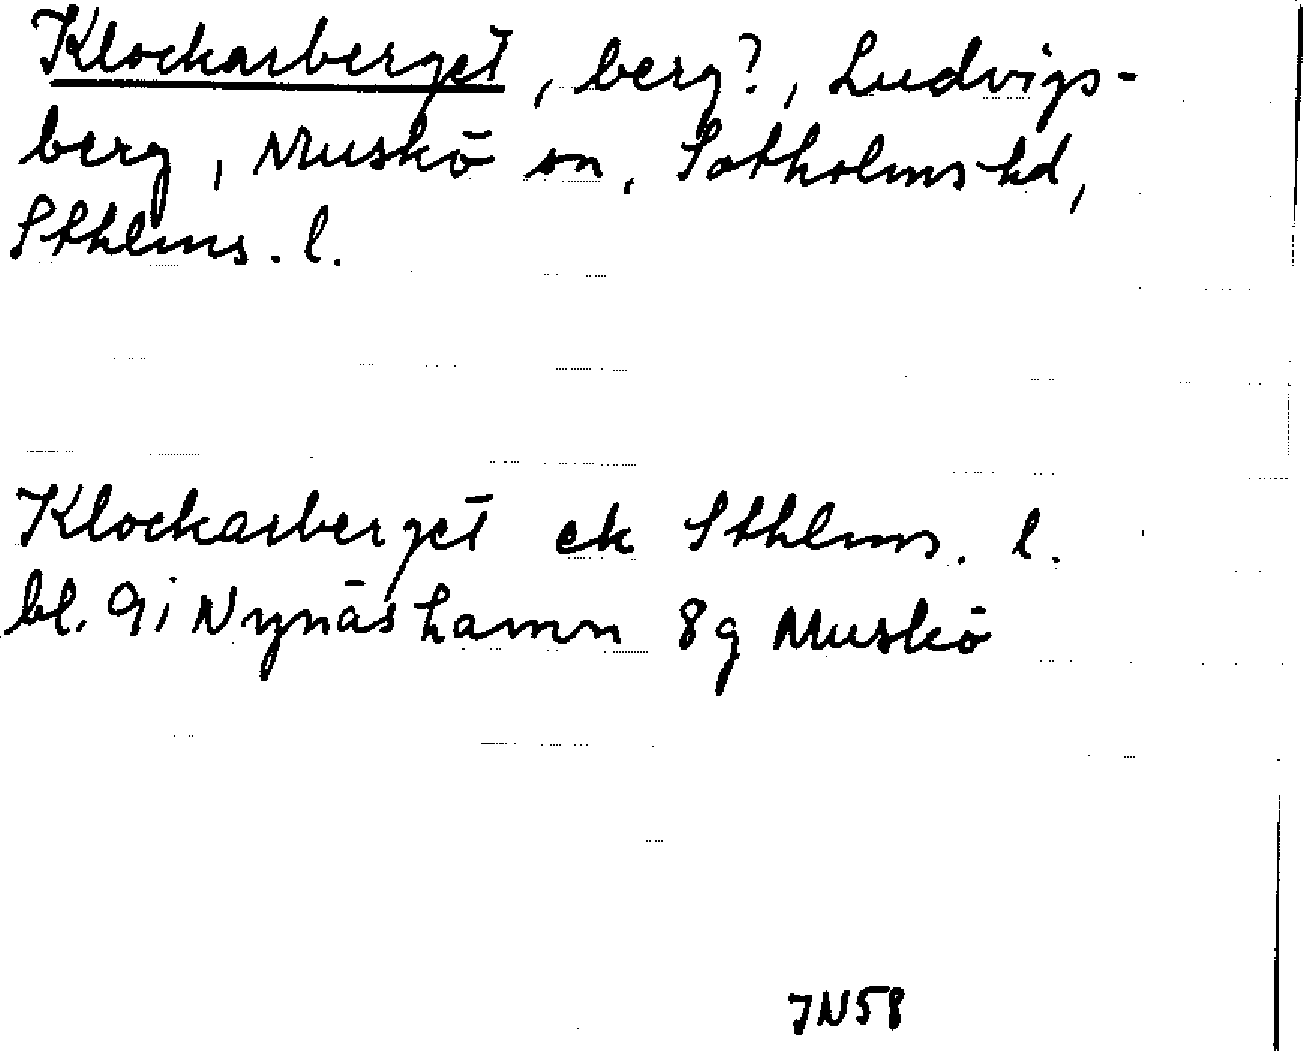 Klockarberget, berg?, Ludvigs-
berg, Muskö sn, Sotholms hd,
Sthlms. l.
Klockarberget ek Sthlms. l.
bl. 9i Nynäshamn 8g Muskö
JN58